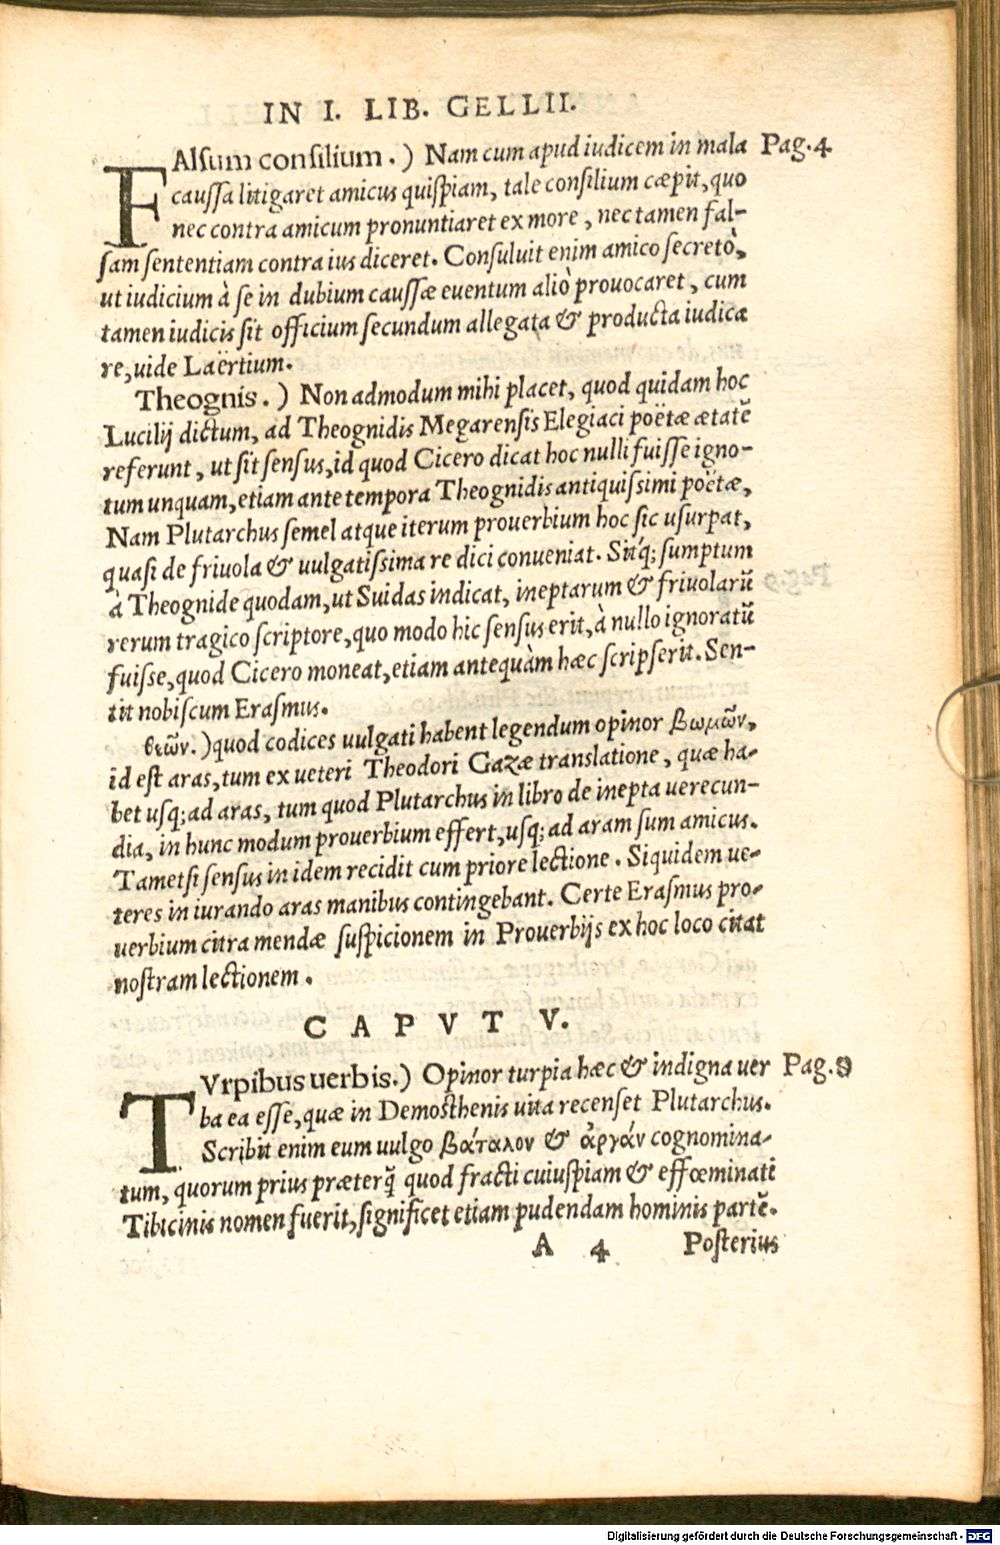 IN I. LIB. GELLII.
FAlsum consilium.) Nam cum apud iudicem in mala Pag.4
caussa litigaret amicus quispiam, tale consilium cæpit, quo
nec contra amicum pronuntiaret ex more, nec tamen fal-
sam sententiam contra ius diceret. Consuluit enim amico secretò,
ut iudicium à se in dubium caussæ euentum aliò prouocaret, cum
tamen iudicis sit officium secundum allegata & producta iudica
re, uide Laërtium.
Theognis.) Non admodum mihi placet, quod quidam hoc
Lucilij dictum, ad Theognidis Megarensis Elegiaci poëtæ ætatē
referunt, ut sit sensus, id quod Cicero dicat hoc nulli fuisse igno-
tum unquam, etiam ante tempora Theognidis antiquissimi poëtæ,
Nam Plutarchus semel atque iterum prouerbium hoc sic usurpat,
quasi de friuola & uulgatissima re dici conueniat. Sitq; sumptum
à Theognide quodam, ut Suidas indicat, ineptarum & friuolarū
rerum tragico scriptore, quo modo hic sensus erit, à nullo ignoratū
fuisse, quod Cicero moneat, etiam antequàm hæc scripserit. Sen-
tit nobiscum Erasmus.
θεῶν.) quod codices uulgati habent legendum opinor βωμῶν,
id est aras, tum ex ueteri Theodori Gazæ translatione, quæ ha-
bet usq; ad aras, tum quod Plutarchus in libro de inepta uerecun-
dia, in hunc modum prouerbium effert, usq; ad aram sum amicus.
Tametsi sensus in idem recidit cum priore lectione. Siquidem ue-
teres in iurando aras manibus contingebant. Certe Erasmus pro-
uerbium citra mendæ suspicionem in Prouerbijs ex hoc loco citat
nostram lectionem.
CAPVT V.
TVrpibus uerbis.) Opinor turpia hæc & indigna uer Pag.9
ba ea esse, quæ in Demosthenis uita recenset Plutarchus.
Scribit enim eum uulgo βάταλον & ἀργάν cognomina-
tum, quorum prius præterq̃ quod fracti cuiuspiam & effœminati
Tibicinis nomen fuerit, significet etiam pudendam hominis partē.
A 4 Posterius
Digitalisierung gefördert durch die Deutsche Forschungsgemeinschaft - DFG